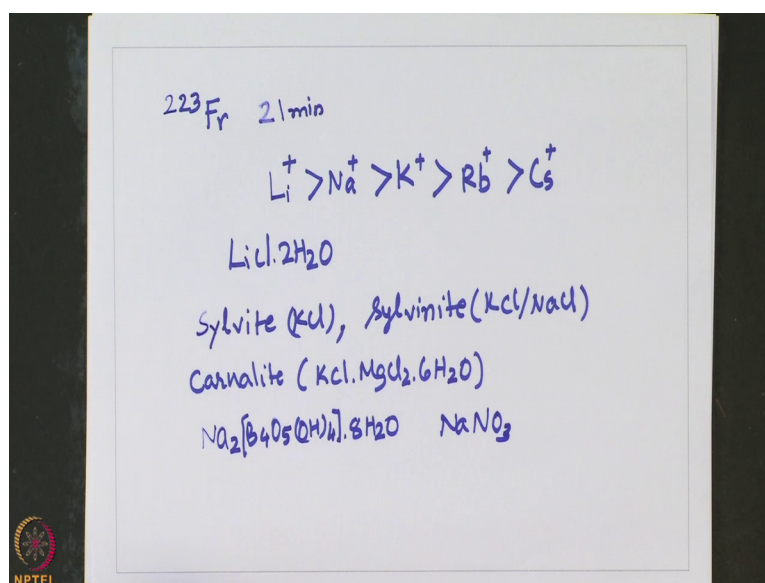 ²²³Fr 21min
Li⁺ > Na⁺ > K⁺ > Rb⁺ > Cs⁺
LiCl.2H₂O
Sylvite (KCl), Sylvinite (KCl/NaCl)
Carnalite (KCl.MgCl₂.6H₂O)
Na₂[B₄O₅(OH)₄].8H₂O NaNO₃
NPTEL